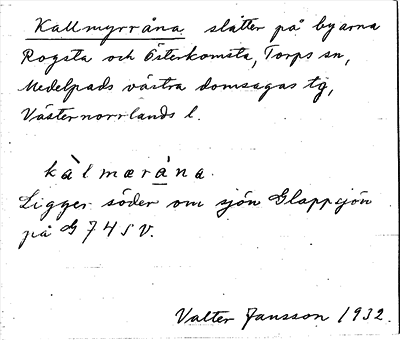 Kallmyrråna slåtter på byarna
Rogsta och Österkomsta, Torps sn,
Medelpads västra domsagas tg,
Västernorrlands l.
kàlmærána.
Ligger söder om sjön Glappsjön
på G 74 SV.
Valter Jansson 1932.